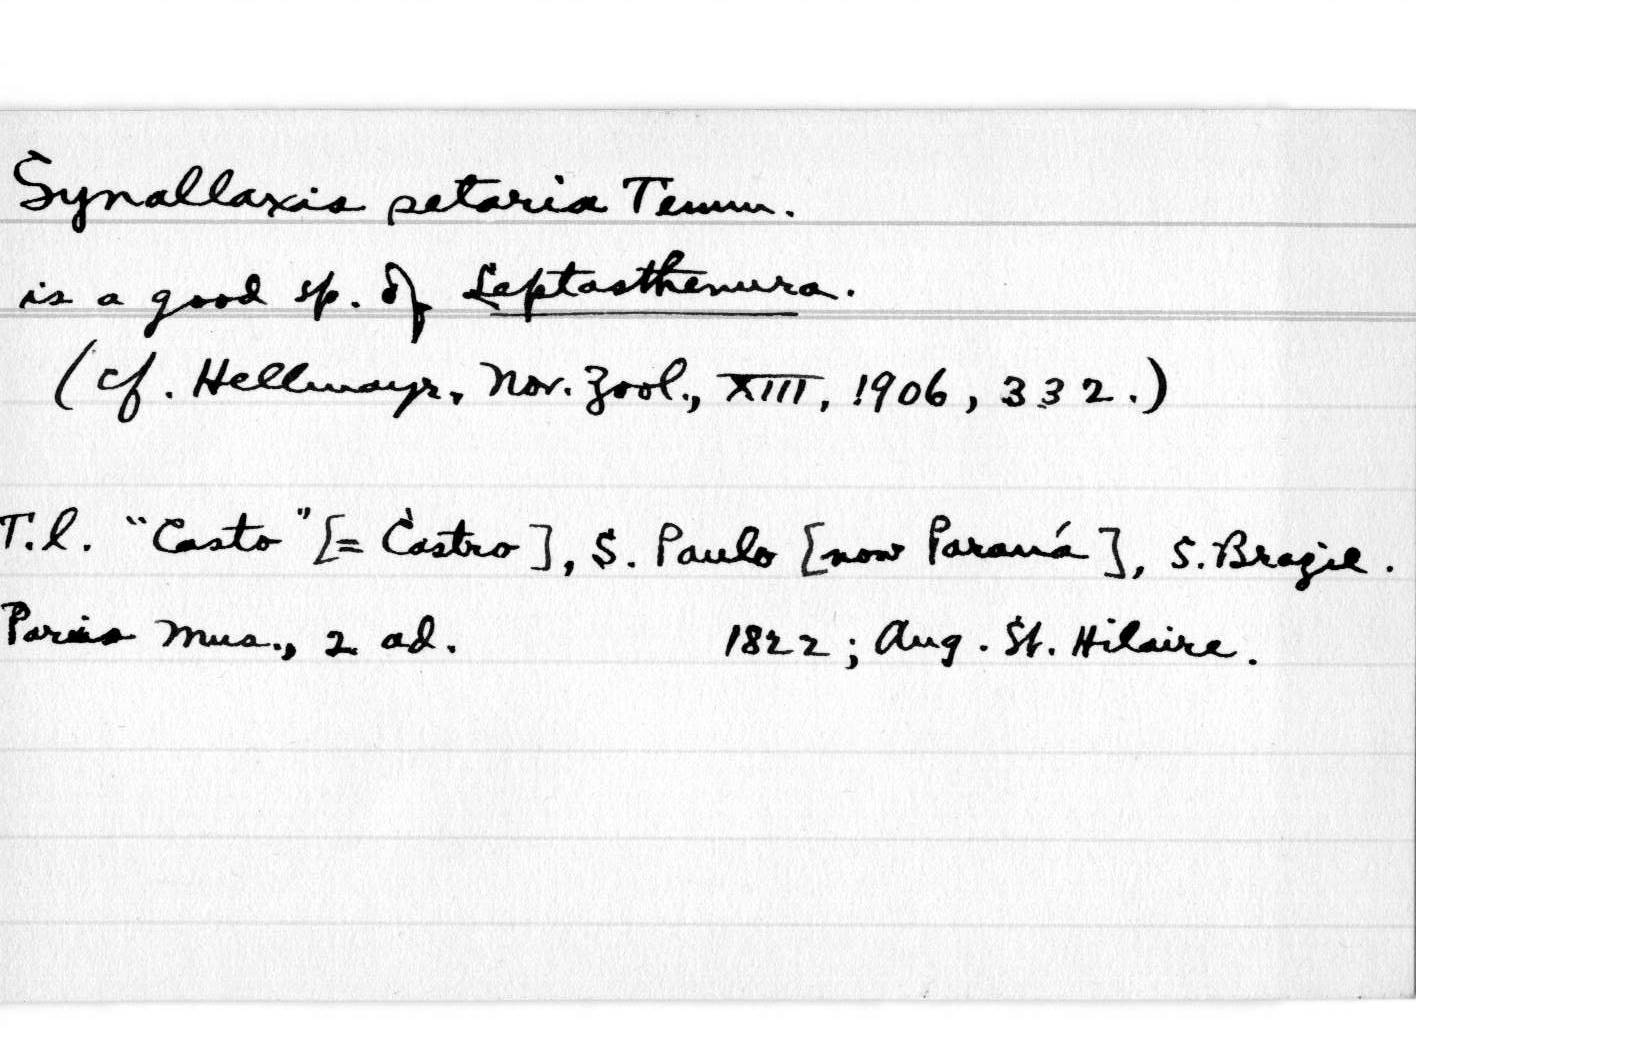 Synallaxis setaria Temm.
is a good sp. of Leptasthenura.
(cf. Hellmayr, Nov. Zool., XIII, 1906, 332.)
T.l. "Casto" [= Castro], S. Paulo [now Paraná], S. Brazil.
Paris Mus., 2 ad. 1822; Aug. St. Hilaire.